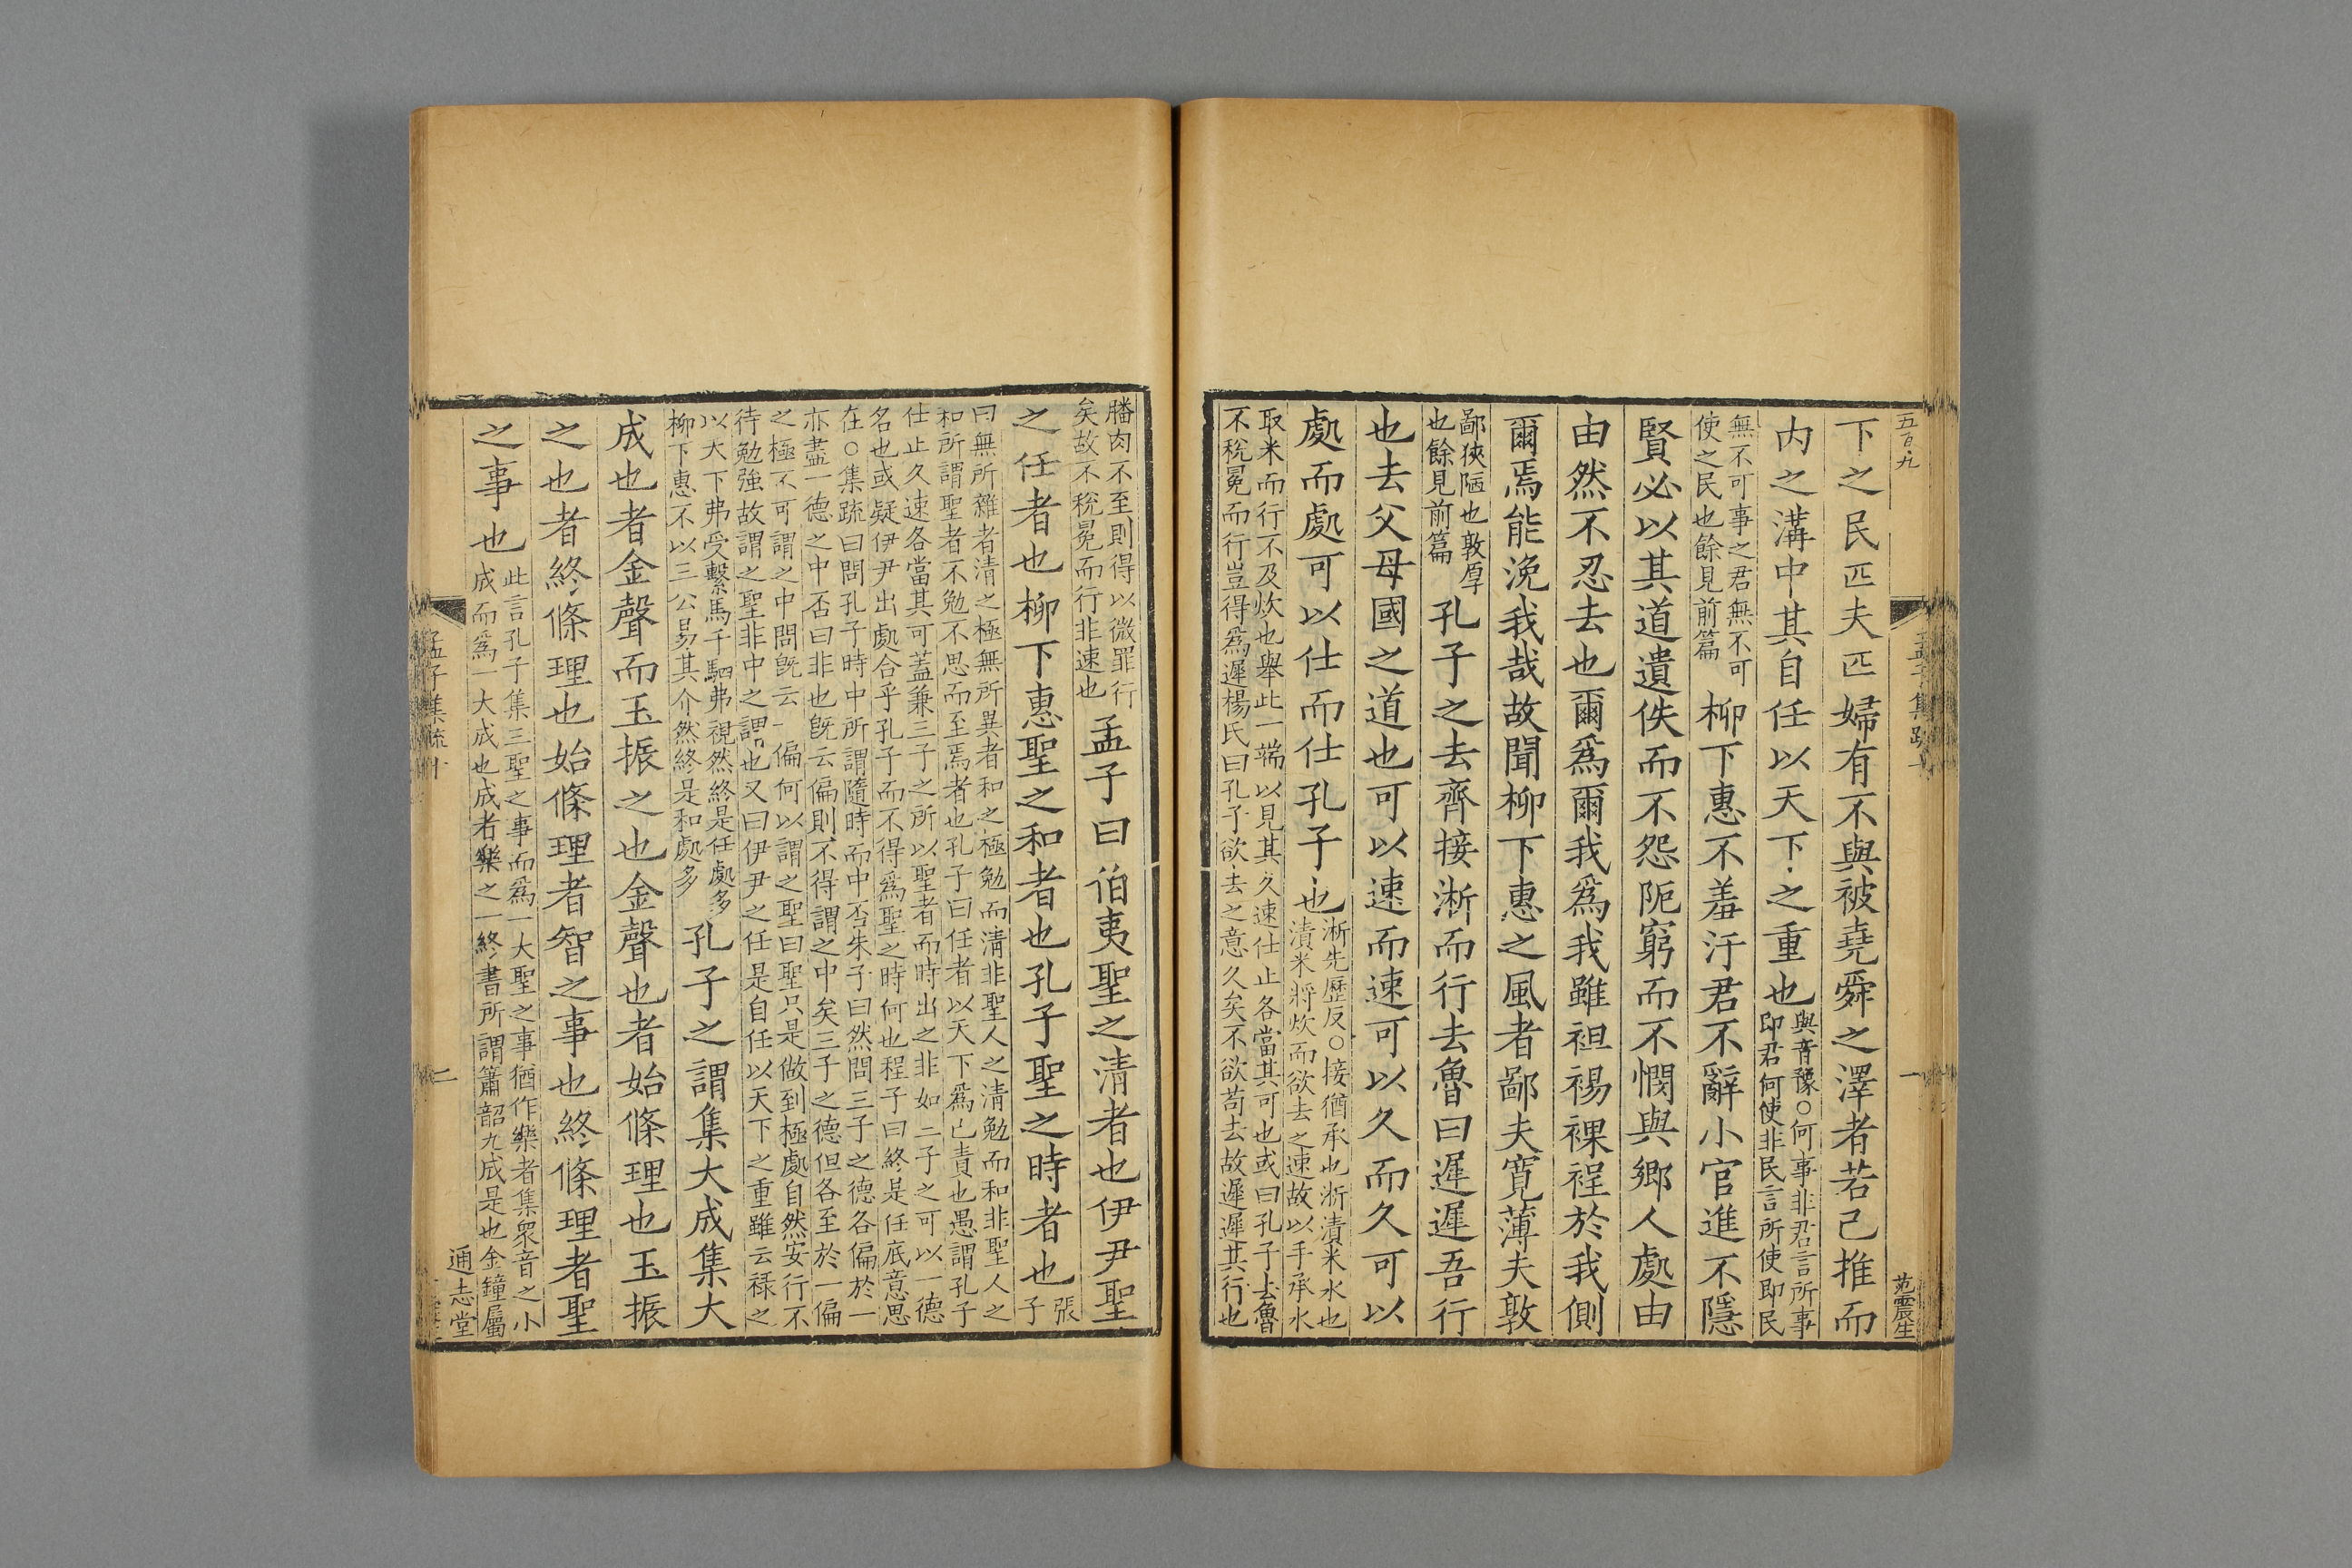 五百九
孟子集疏十
一
范震生
下之民匹夫匹婦有不與被堯舜之澤者若己推而
内之溝中其自任以天下之重也與音豫○何事非君言所事
即君何使非民言所使即民
無不可事之君無不可
使之民也餘見前篇
柳下惠不羞汙君不辭小官進不隱
賢必以其道遺佚而不怨阨窮而不憫與鄉人處由
由然不忍去也爾爲爾我爲我雖袒裼裸裎於我側
爾焉能浼我哉故聞柳下惠之風者鄙夫寛薄夫敦
鄙狹陋也敦厚
也餘見前篇
孔子之去齊接淅而行去魯曰遲遲吾行
也去父母國之道也可以速而速可以久而久可以
處而處可以仕而仕孔子也淅先歷反○接猶承也淅漬米水也
漬米將炊而欲去之速故以手承水
取米而行不及炊也舉此一端以見其久速仕止各當其可也或曰孔子去魯
不稅冕而行豈得爲遲楊氏曰孔子欲去之意久矣不欲苟去故遲遲其行也
膰肉不至則得以微罪行
矣故不稅冕而行非速也
孟子曰伯夷聖之清者也伊尹聖
之任者也柳下惠聖之和者也孔子聖之時者也張
子
曰無所雜者清之極無所異者和之極勉而清非聖人之清勉而和非聖人之
和所謂聖者不勉不思而至焉者也孔子曰任者以天下爲已責也愚謂孔子
仕止久速各當其可蓋兼三子之所以聖者而時出之非如二子之可以一德
名也或疑伊尹出處合乎孔子而不得爲聖之時何也程子曰終是任底意思
在○集疏曰問孔子時中所謂隨時而中否朱子曰然問三子之德各偏於一
亦盡一德之中否曰非也旣云偏則不得謂之中矣三子之德但各至於一偏
之極不可謂之中問旣云一偏何以謂之聖曰聖只是做到極處自然安行不
待勉強故謂之聖非中之謂也又曰伊尹之任是自任以天下之重雖云禄之
以天下弗受繫馬千駟弗視然終是任處多
柳下惠不以三公易其介然終是和處多
孔子之謂集大成集大
成也者金聲而玉振之也金聲也者始條理也玉振
之也者終條理也始條理者智之事也終條理者聖
之事也此言孔子集三聖之事而爲一大聖之事猶作樂者集衆音之小
成而爲一大成也成者樂之一終書所謂簫韶九成是也金鐘屬
孟子集疏十
二
通志堂